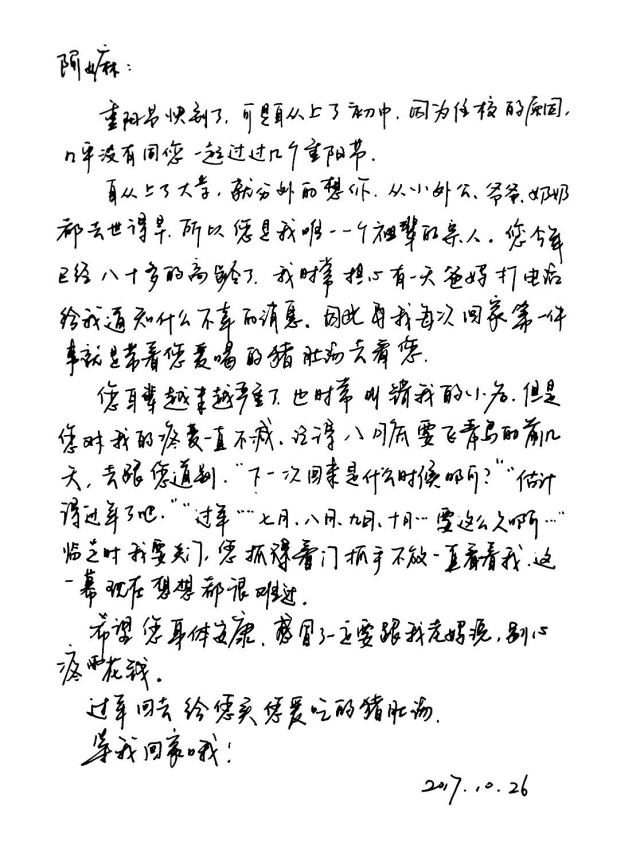 阿嫲：
重阳节快到了，可是自从上了初中，因为住校的原因，
几乎没有同您一起过过几个重阳节。
自从上了大学，就分外的想你。从小外公、爷爷、奶奶
都去世得早，所以您是我唯一一个祖辈的亲人。您今年
已经八十多的高龄了，我时常担心有一天爸妈打电话
给我通知什么不幸的消息。因此我每次回家第一件
事就是带着您爱喝的猪肚汤去看您。
您耳聋越来越严重了，也时常叫错我的小名，但是
您对我的疼爱一直不减。记得八月底要飞青岛的前几
天，去跟您道别，“下一次回来是什么时候啊？”“估计
得过年了吧。”“过年……七月、八月、九月、十月…要这么久啊…”
临走时我要关门，您抓着门抓手不放一直看着我，这
一幕现在想想都很难过。
希望您身体安康，感冒了一定要跟我老妈说，别心
疼花钱。
过年回去给您买您爱吃的猪肚汤。
等我回家哦！
2017.10.26